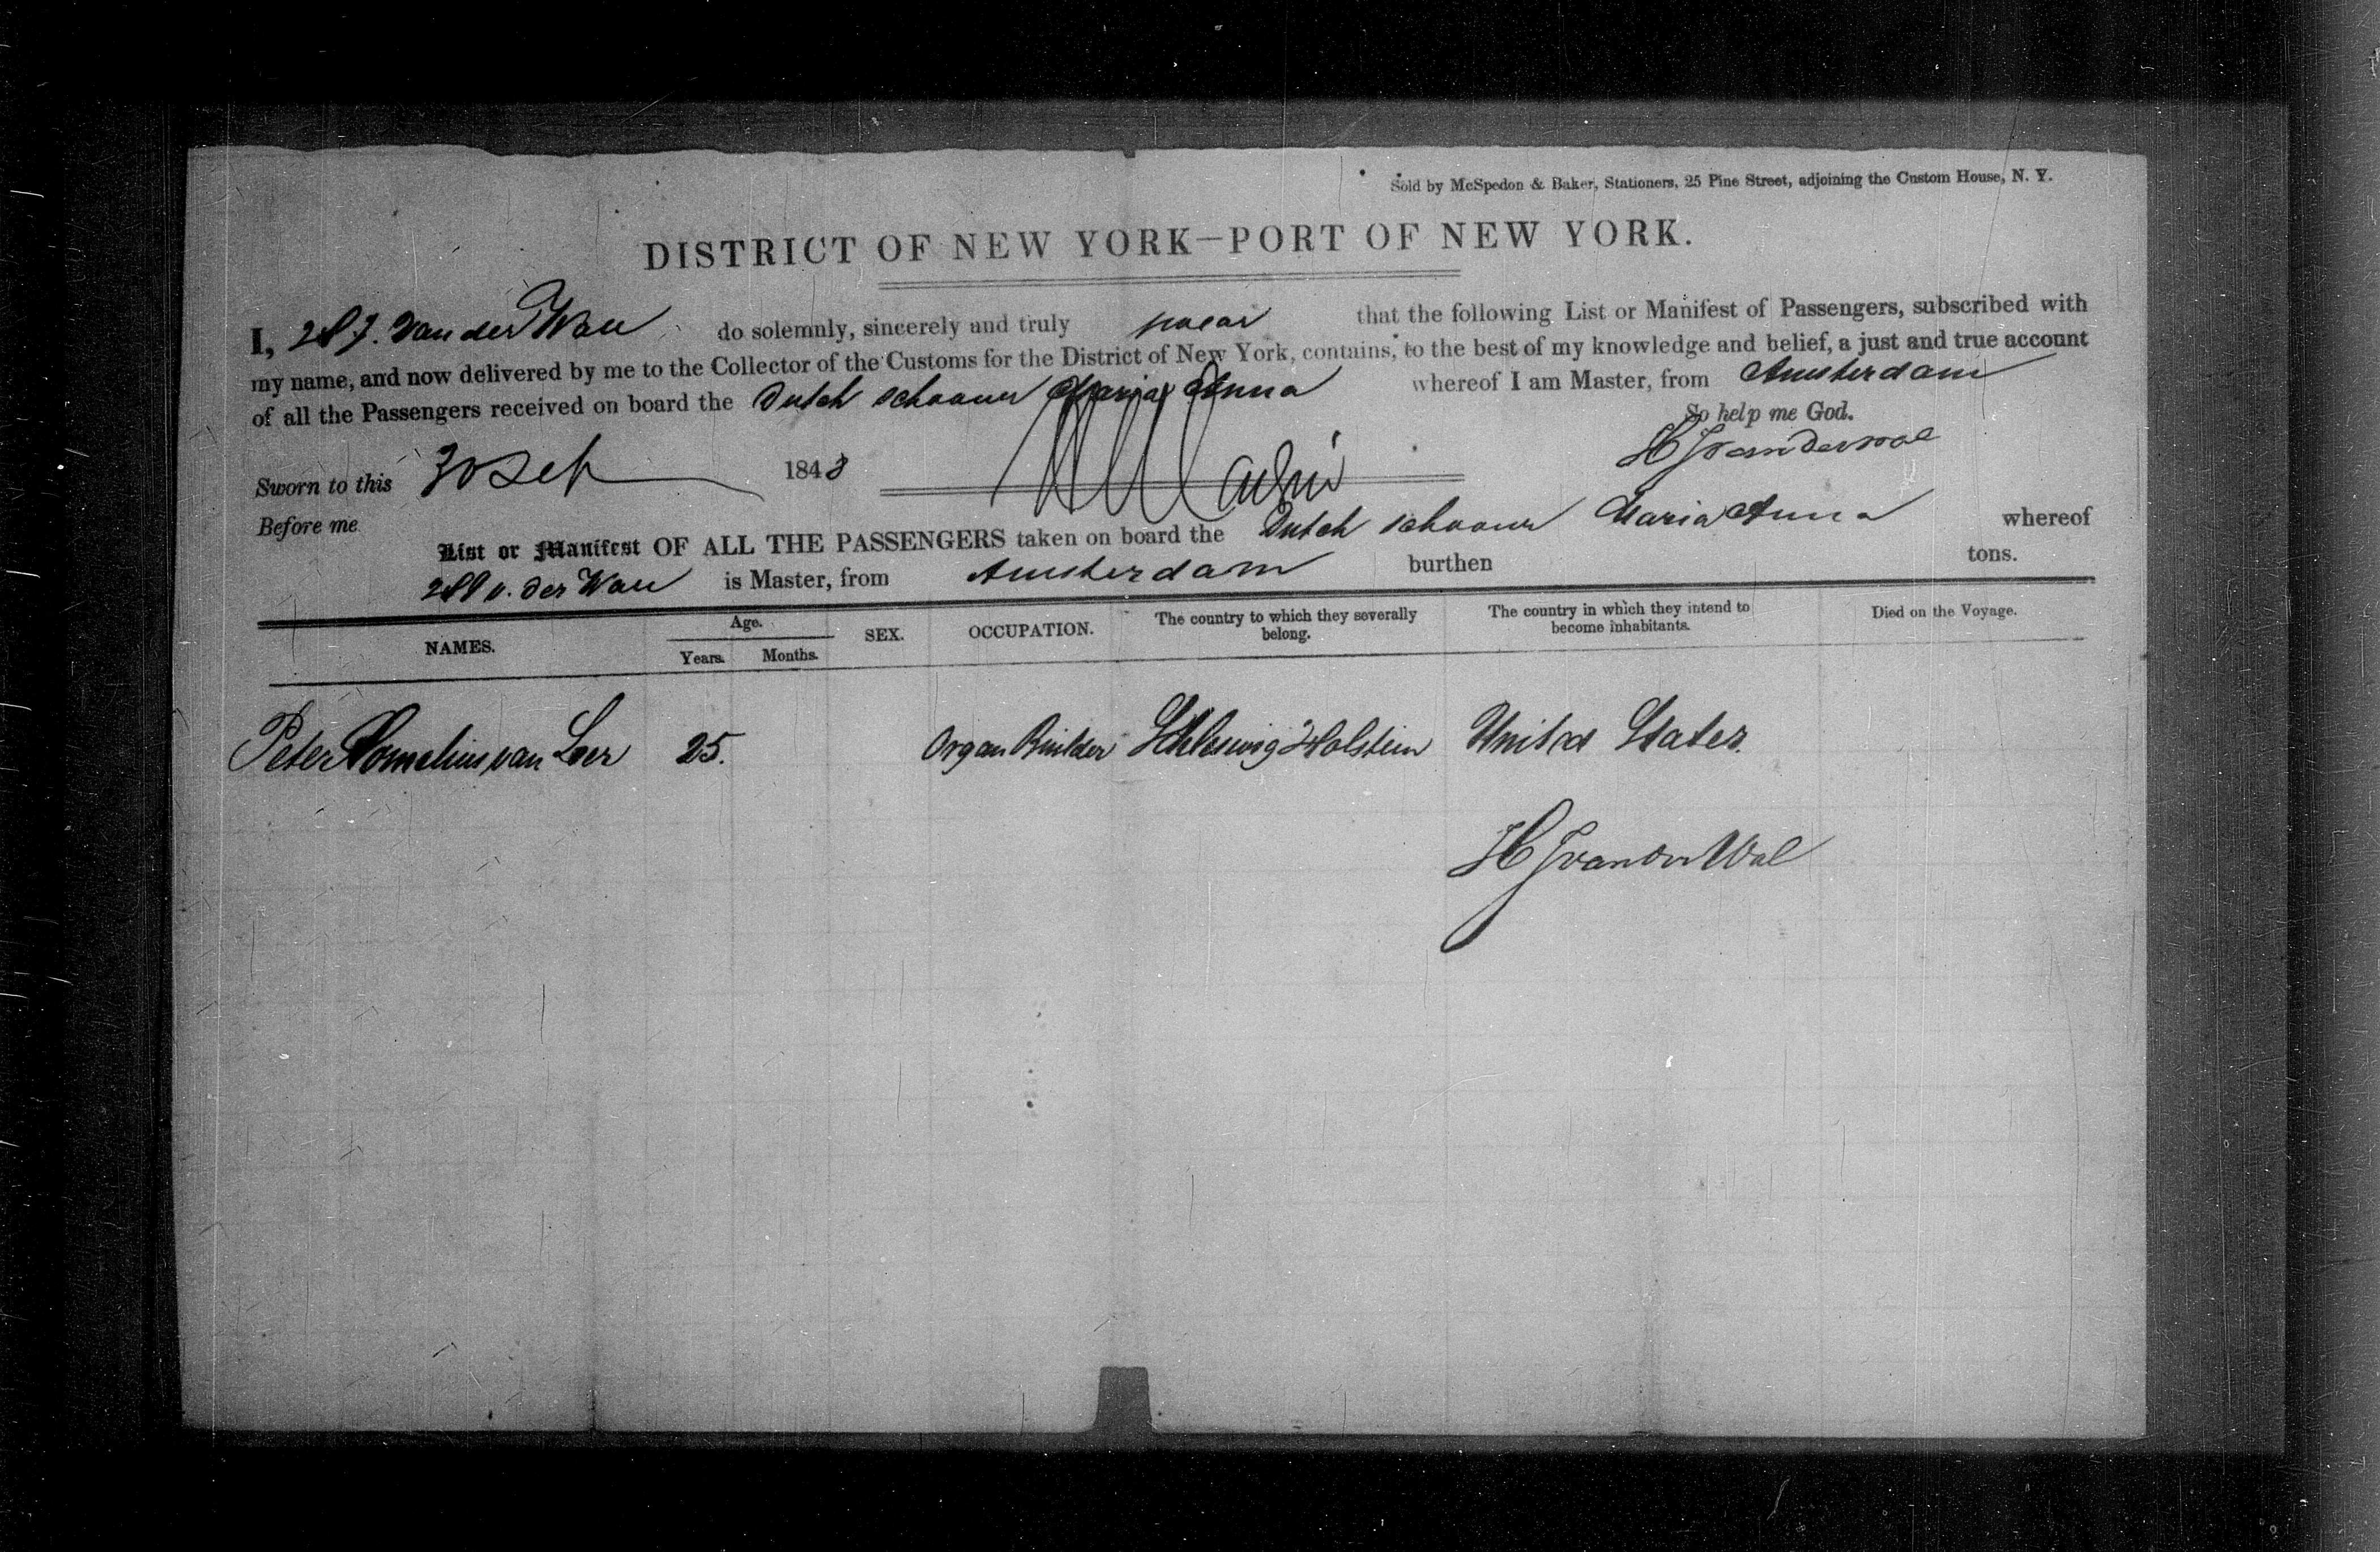 Sold by McSpedon & Baker, Stationers, 25 Pine Street, adjoining the Custom House, N. Y.
DISTRICT OF NEW YORK—PORT OF NEW YORK.
I, H J. Van der Wal do solemnly, sincerely and truly swear that the following List or Manifest of Passengers, subscribed with
my name, and now delivered by me to the Collector of the Customs for the District of New York, contains, to the best of my knowledge and belief, a just and true account
of all the Passengers received on board the Dutch schooner Maria Anna whereof I am Master, from Amsterdam
So help me God.
H J van der wal
Sworn to this 30 Sep 1848
Before me
List or Manifest OF ALL THE PASSENGERS taken on board the Dutch schooner Maria Anna whereof
H J v. der Wal is Master, from Amsterdam burthen tons.
NAMES. Age. Years. Months. SEX. OCCUPATION. The country to which they severally belong. The country in which they intend to become inhabitants. Died on the Voyage.
Peter Cornelius van Loer 25. Organ Builder Schleswig Holstein United States.
H J van der Wal